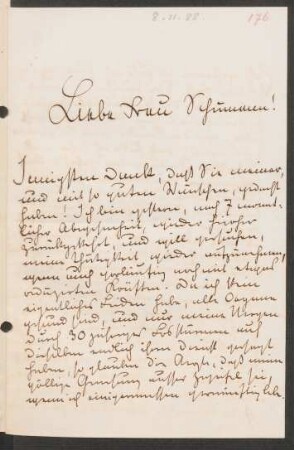 8.11.88
176
Liebe Frau Schumann!
Innigsten Dank, daß Sie meiner,
und mit so guten Wünschen, gedacht
haben! Ich bin gestern, nach 7 monat-
licher Abwesenheit, wieder hierher
zurückgekehrt, und will versuchen,
meine Thätigkeit wieder aufzunehmen,
wenn auch vorläufig noch mit etwas
reduzirten Kräften. Da ich kein
eigentliches Leiden habe, alle Organe
gesund sind, und nur meine Nerven
durch 30 jähriges
dieselben endlich ihren Dienst versagt
haben, so glauben die Ärzte, daß meine
völlige Genesung ausser Zweifel sei,
wenn ich einigermassen vernünftig lebe.